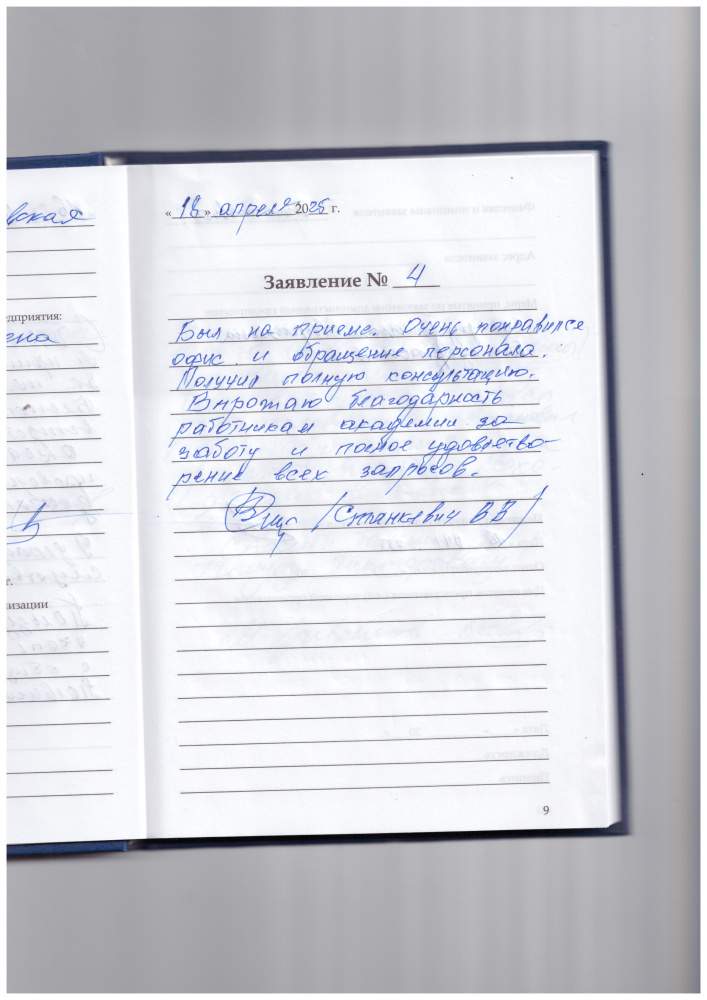 вская
едприятия:
ена
г.
изации
« 18 » апреля 2025 г.
Заявление № 4
Был на приеме. Очень понравился
офис и обращение персонала.
Получил полную консультацию.
Вырожаю благодарность
работникам академии за
заботу и полное удовлетво-
рение всех запросов.
/Станкевич ВВ/
9